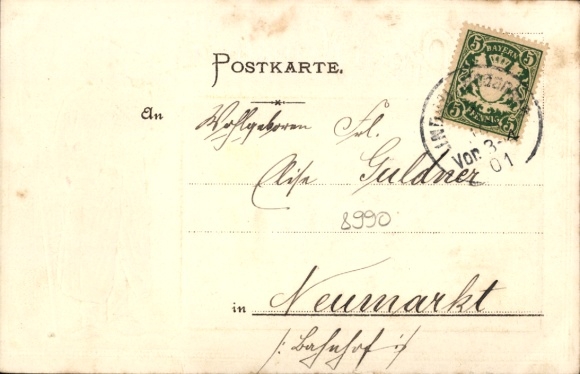 POSTKARTE.
5 BAYERN 5
5 PFENNIG
Vor. 3-
01
An Wohlgeboren Frl.
Elise Guldner
8990
in Neumarkt
/: Bahnhof :/